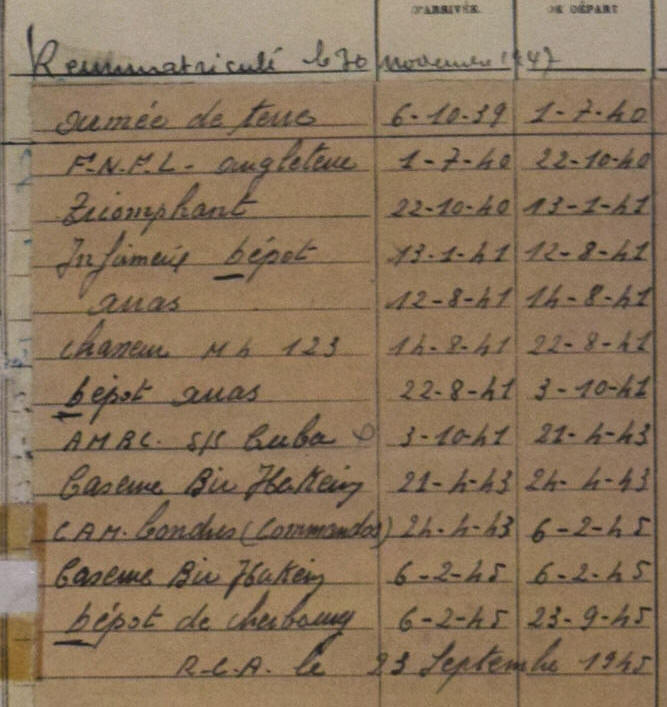 D'ARRIVÉE. DE DÉPART
Remmatriculé le 30 novembre 1947
Armée de terre 6-10-39 1-7-40
F.N.F.L- Angleterre 1-7-40 22-10-40
Triomphant 22-10-40 13-1-41
Infirmerie Dépot 13-1-41 12-8-41
Anas 12-8-41 14-8-41
Chasseur M 4 123 14-8-41 22-8-41
Dépot Anas 22-8-41 3-10-41
AMBC. S/S Cuba 3-10-41 21-4-43
Caserne Bir Hakeim 21-4-43 24-4-43
C.A.M. Londres (Commandos) 24-4-43 6-2-45
Caserne Bir Hakeim 6-2-45 6-2-45
Dépot de Cherbourg 6-2-45 23-9-45
R.C.A. le 23 Septembre 1945